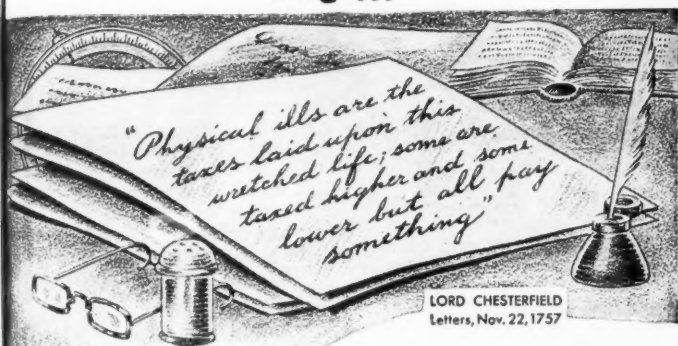 "Physical ills are the
taxes laid upon this
wretched life; some are
taxed higher and some
lower but all pay
something"
LORD CHESTERFIELD
Letters, Nov. 22, 1757